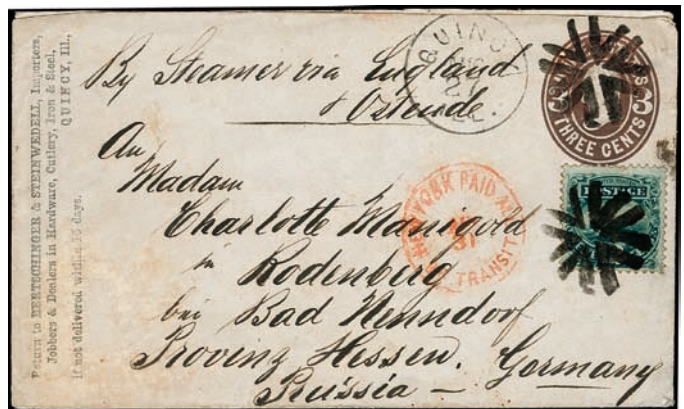 Return to BERTSCHINGER & STEINWEDELL, Importers,
Jobbers & Dealers in Hardware, Cutlery, Iron & Steel,
QUINCY, Ill.,
if not delivered within 15 days.
By Steamer via England
& Ostende.
QUINCY
27
ILL
THREE CENTS
3
POSTAGE
NEW YORK PAID ALL
31
TRANSIT
An
Madam
Charlotte Manigold
in Rodenberg
bei Bad Nenndorf
Provinz Hessen. Germany
Preissia —